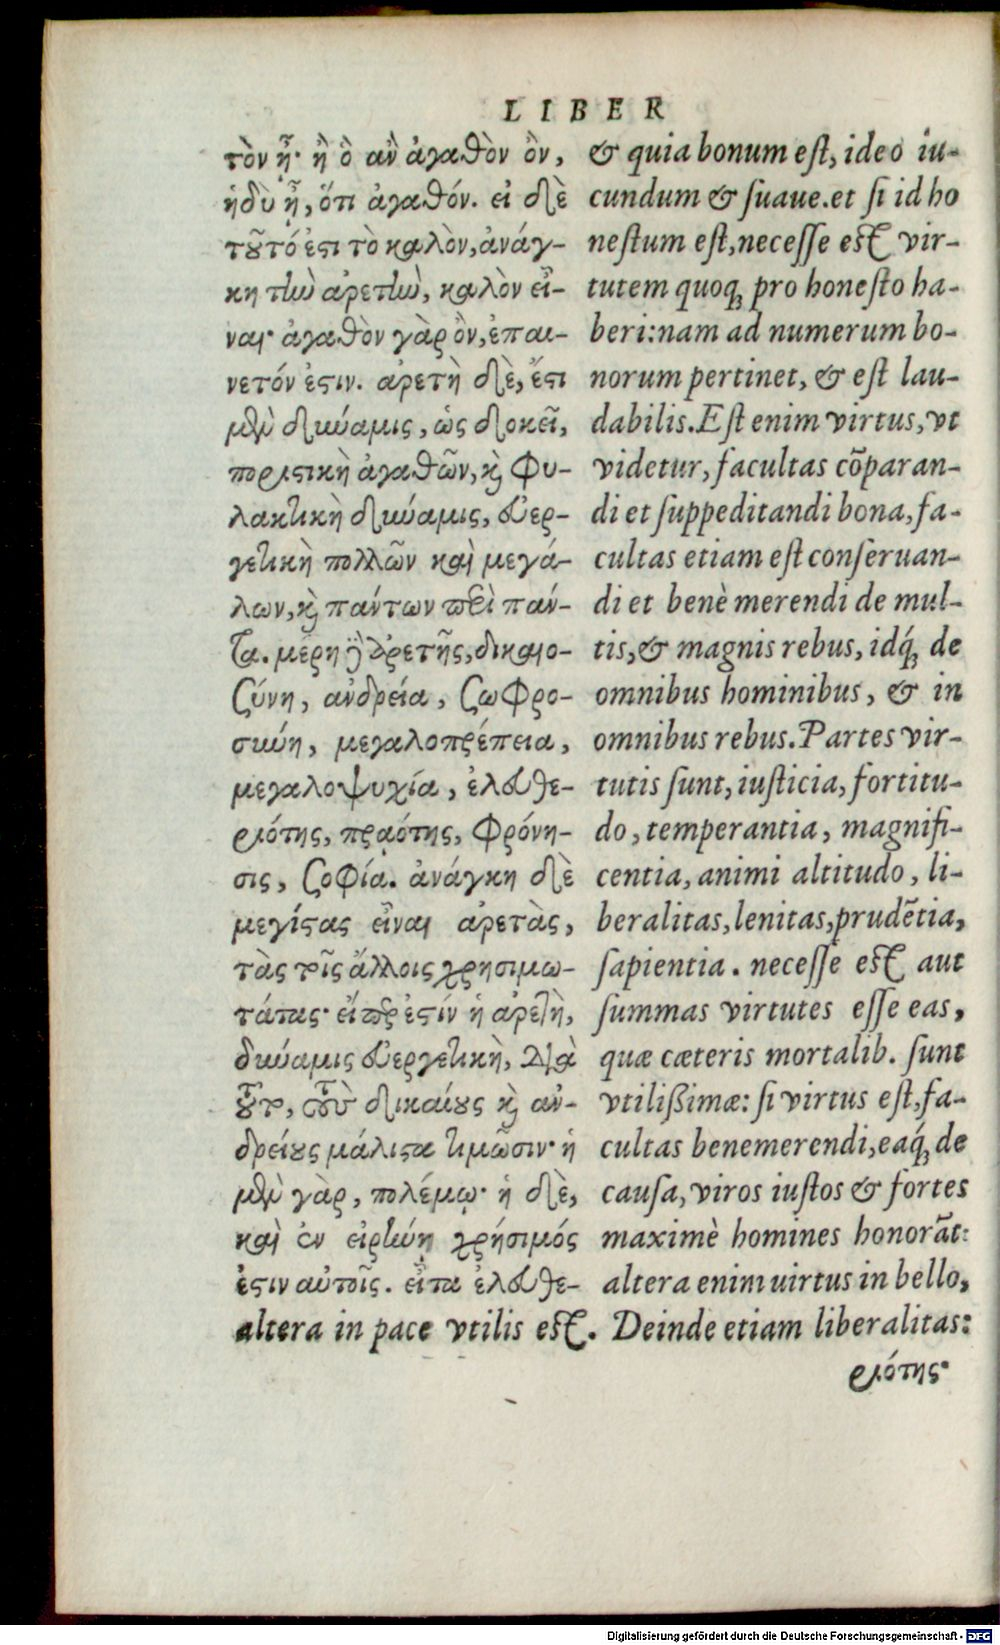 LIBER
τὸν ᾖ· ἢ ὃ ἂν ἀγαθὸν ὂν,
ἡδὺ ᾖ, ὅτι ἀγαθόν. εἰ δὲ
τοῦτό ἐστι τὸ καλὸν, ἀνάγ-
κη τὴν ἀρετὴν, καλὸν εἶ-
ναι· ἀγαθὸν γὰρ ὂν, ἐπαι-
νετόν ἐστιν. ἀρετὴ δὲ, ἔστι
μὲν δύναμις, ὡς δοκεῖ,
ποριστικὴ ἀγαθῶν, καὶ φυ-
λακτικὴ δύναμις, εὐερ-
γετικὴ πολλῶν καὶ μεγά-
λων, καὶ πάντων περὶ πάν-
τα. μέρη δὲ ἀρετῆς, δικαιο-
σύνη, ἀνδρεία, σωφρο-
σύνη, μεγαλοπρέπεια,
μεγαλοψυχία, ἐλευθε-
ριότης, πραότης, φρόνη-
σις, σοφία. ἀνάγκη δὲ
μεγίστας εἶναι ἀρετὰς,
τὰς τοῖς ἄλλοις χρησιμω-
τάτας· εἴπερ ἐστίν ἡ ἀρετὴ,
δύναμις εὐεργετικὴ, διὰ
τοῦτο, τοὺς δικαίους καὶ ἀν-
δρείους μάλιστα τιμῶσιν· ἡ
μὲν γὰρ, πολέμῳ· ἡ δὲ,
καὶ ἐν εἰρήνῃ χρήσιμός
ἐστιν αὐτοῖς. εἶτα ἐλευθε-
& quia bonum est, ideo iu-
cundum & suaue. et si id ho
nestum est, necesse est vir-
tutem quoq; pro honesto ha-
beri: nam ad numerum bo-
norum pertinet, & est lau-
dabilis. Est enim virtus, vt
videtur, facultas cõparan-
di et suppeditandi bona, fa-
cultas etiam est conseruan-
di et benè merendi de mul-
tis, & magnis rebus, idq́; de
omnibus hominibus, & in
omnibus rebus. Partes vir-
tutis sunt, iusticia, fortitu-
do, temperantia, magnifi-
centia, animi altitudo, li-
beralitas, lenitas, prudẽtia,
sapientia. necesse est aut
summas virtutes esse eas,
quæ cæteris mortalib. sunt
vtilißimæ: si virtus est, fa-
cultas benemerendi, eaq́; de
causa, viros iustos & fortes
maximè homines honorãt:
altera enim uirtus in bello,
altera in pace vtilis est. Deinde etiam liberalitas:
ριότης·
Digitalisierung gefördert durch die Deutsche Forschungsgemeinschaft - DFG